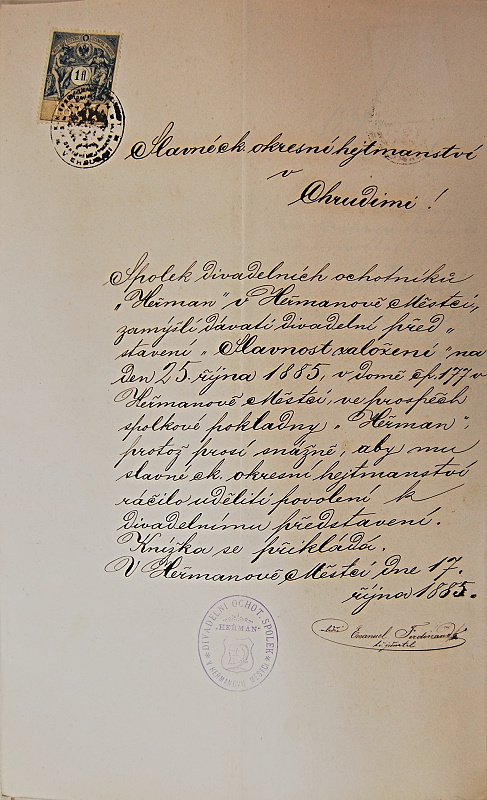 1 fl
Slavné c.k. okresní hejtmanství
v
Chrudimi!
Spolek divadelních ochotníků
„Heřman" v Heřmanově Městci,
zamýšlí dávati divadelní před„
stavení „Slavnost založení" na
den 25. října 1885, v domě čp. 177. v
Heřmanově Městci, ve prospěch
spolkové pokladny „Heřman",
protož prosí snážně, aby mu
slavné ck. okresní hejtmanství
ráčilo uděliti povolení k
divadelnímu představení.
Knížka se přikládá.
V Heřmanově Městci dne 17.
října 1885.
Emanuel Ferdinand
DIVADELNÍ OCHOT. SPOLEK
HEŘMAN